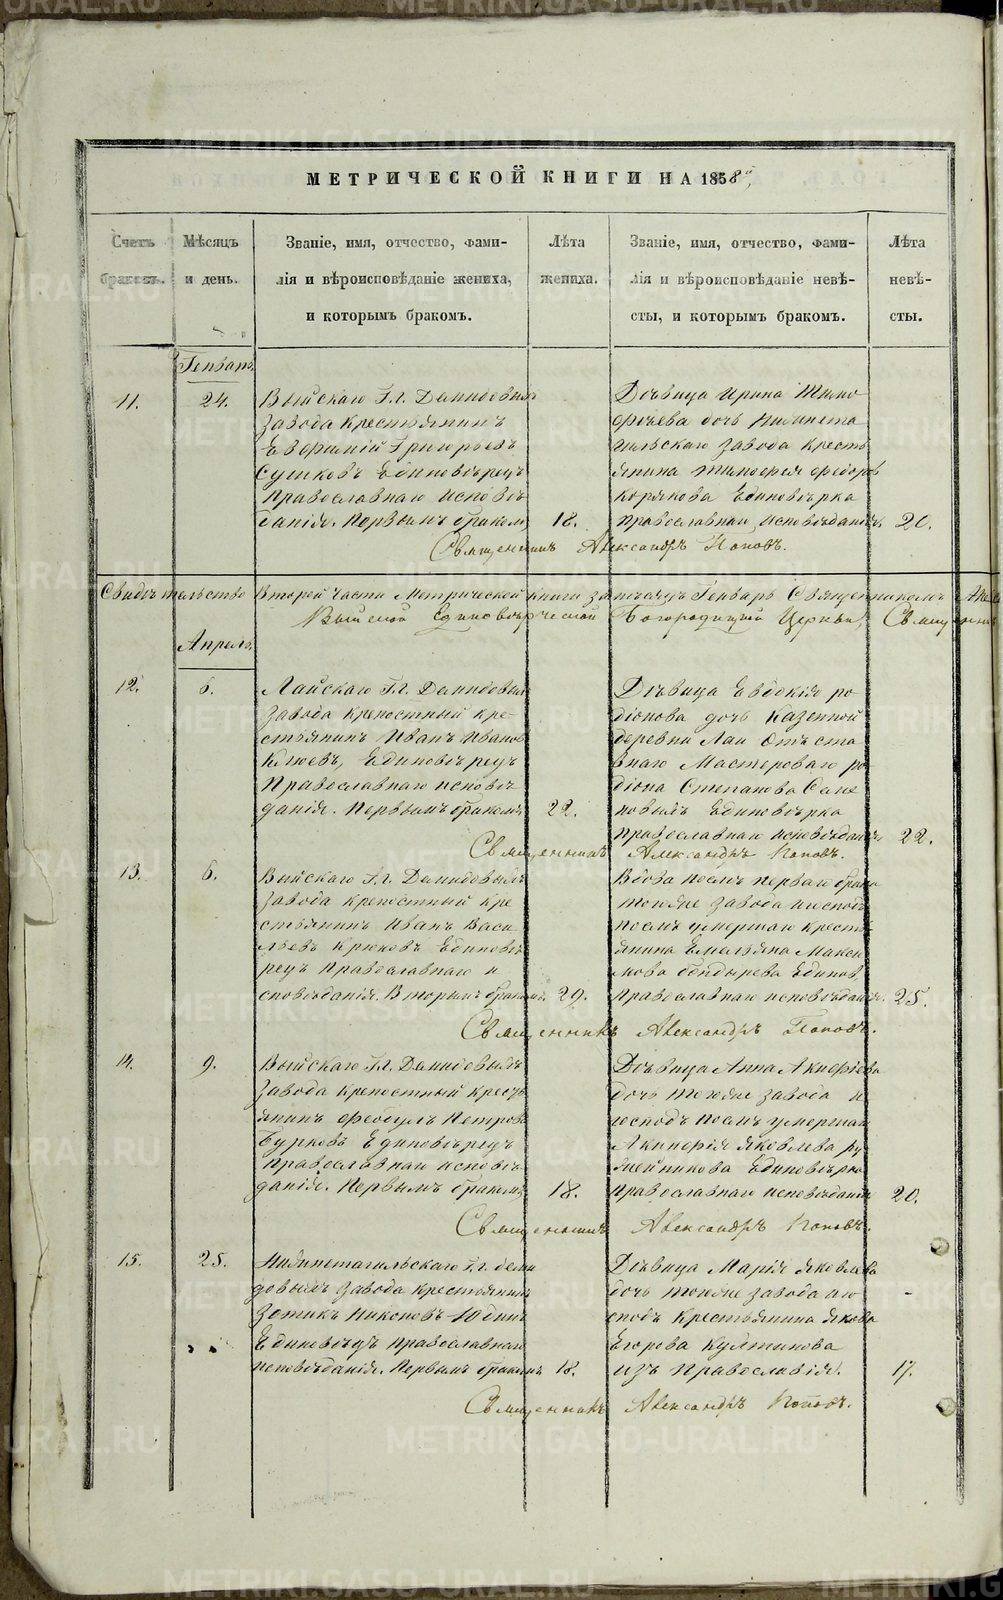 МЕТРИЧЕСКОЙ КНИГИ НА 1858й,
Счетъ браковъ.
Мѣсяцъ и день.
Званіе, имя, отчество, фами-
лія и вѣроисповѣданіе жениха,
и которымъ бракомъ.
Лѣта жениха.
Званіе, имя, отчество, фами-
лія и вѣроисповѣданіе невѣ-
сты, и которымъ бракомъ.
Лѣта невѣ-
сты.
Генварь
11.
24.
Выйскаго Гг. Демидовыхъ
завода крестьянинъ
Евфимій Григорьевъ
Сушковъ Единовѣрецъ
православнаго исповѣ
данія. Первымъ бракомъ
18.
Дѣвица Ирина Тимо
фѣева дочь Нижнета
гильскаго завода кресть
янина Тимофея Федоров
Корякова Единовѣрка
православнаго исповѣданія.
20.
Священникъ Александръ Поповъ.
Свидѣтельство второй части Метрической книги за мѣсяцъ Генварь Священникомъ
Выйской Единовѣрческой Богородицкой Церкви, Священникъ
Апрель
12.
6.
Лайскаго Гг. Демидовыхъ
завода крепостный кре-
стьянинъ Иванъ Иванов
Клюевъ, Единовѣрецъ
Православнаго исповѣ
данія. Первымъ бракомъ
22.
Дѣвица Евдокія ро
діонова дочь казенной
деревни Лаи Отъста
внаго Мастероваго ро
діона Степанова
Единовѣрка
православнаго исповѣданія.
22.
Священникъ Александръ Поповъ.
13.
6.
Выйскаго Гг. Демидовыхъ
завода крепостный кре
стьянинъ Иванъ Васи
льевъ Крюковъ Единовѣ
рецъ Православнаго и
сповѣданія. Вторымъ бракомъ.
29.
Вдова послѣ перваго брака
тогоже завода и господъ
послѣ умершаго кресть
янина Емельяна Макси
мова Единов.
православнаго исповѣданія.
25.
Священникъ Александръ Поповъ.
14.
9.
Выйскаго Гг. Демидовыхъ
завода крепостный кресть
янинъ Феодулъ Петровъ
Бурковъ Единовѣрецъ
православнаго исповѣ
данія. Первымъ бракомъ
18.
Дѣвица Анна Акинфіева
дочь тогоже завода и
господъ послѣ умершаго
Акинфія Яковлева ру
Единовѣрка
православнаго исповѣданія
20.
Священникъ Александръ Поповъ.
15.
25.
Нижнетагильскаго Гг. Деми
довыхъ завода крестьянинъ
Зотикъ Никоновъ Юдинъ
Единовѣцъ православнаго
исповѣданія. Первымъ бракомъ
18.
Дѣвица Марія Яковлева
дочь тогоже завода и го
сподъ крестьянина Якова
Егорова
изъ Православія.
17.
Священникъ Александръ Поповъ.
METRIKI.GASO-URAL.RU